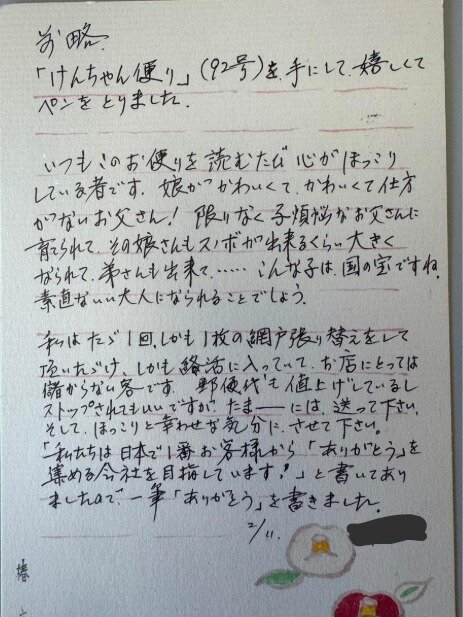 前略.
「けんちゃん便り」(92号)を手にして、嬉しくて
ペンをとりました.
いつもこのお便りを読むたび心がほっこり
している者です. 娘がかわいくて、かわいくて仕方
がないお父さん! 限りなく子煩悩なお父さんに
育てられて、その娘さんもスノボが出来るくらい大きく
なられて、弟さんも出来て、……こんな子は、国の宝ですね.
素直ないい大人になられることでしょう.
私はたゞ1回、しかも1枚の網戸張り替えをして
頂いただけ、しかも終活に入っていて、お店にとっては
儲からない客です. 郵便代も値上げしているし
ストップされてもいいですが、たまーには、送って下さい.
そして、ほっこりと幸わせな気分に、させて下さい.
「私たちは日本で1番お客様から「ありがとう」を
集める会社を目指しています!」と書いてあり
ましたので、一筆「ありがとう」を書きました.
2/11.
椿